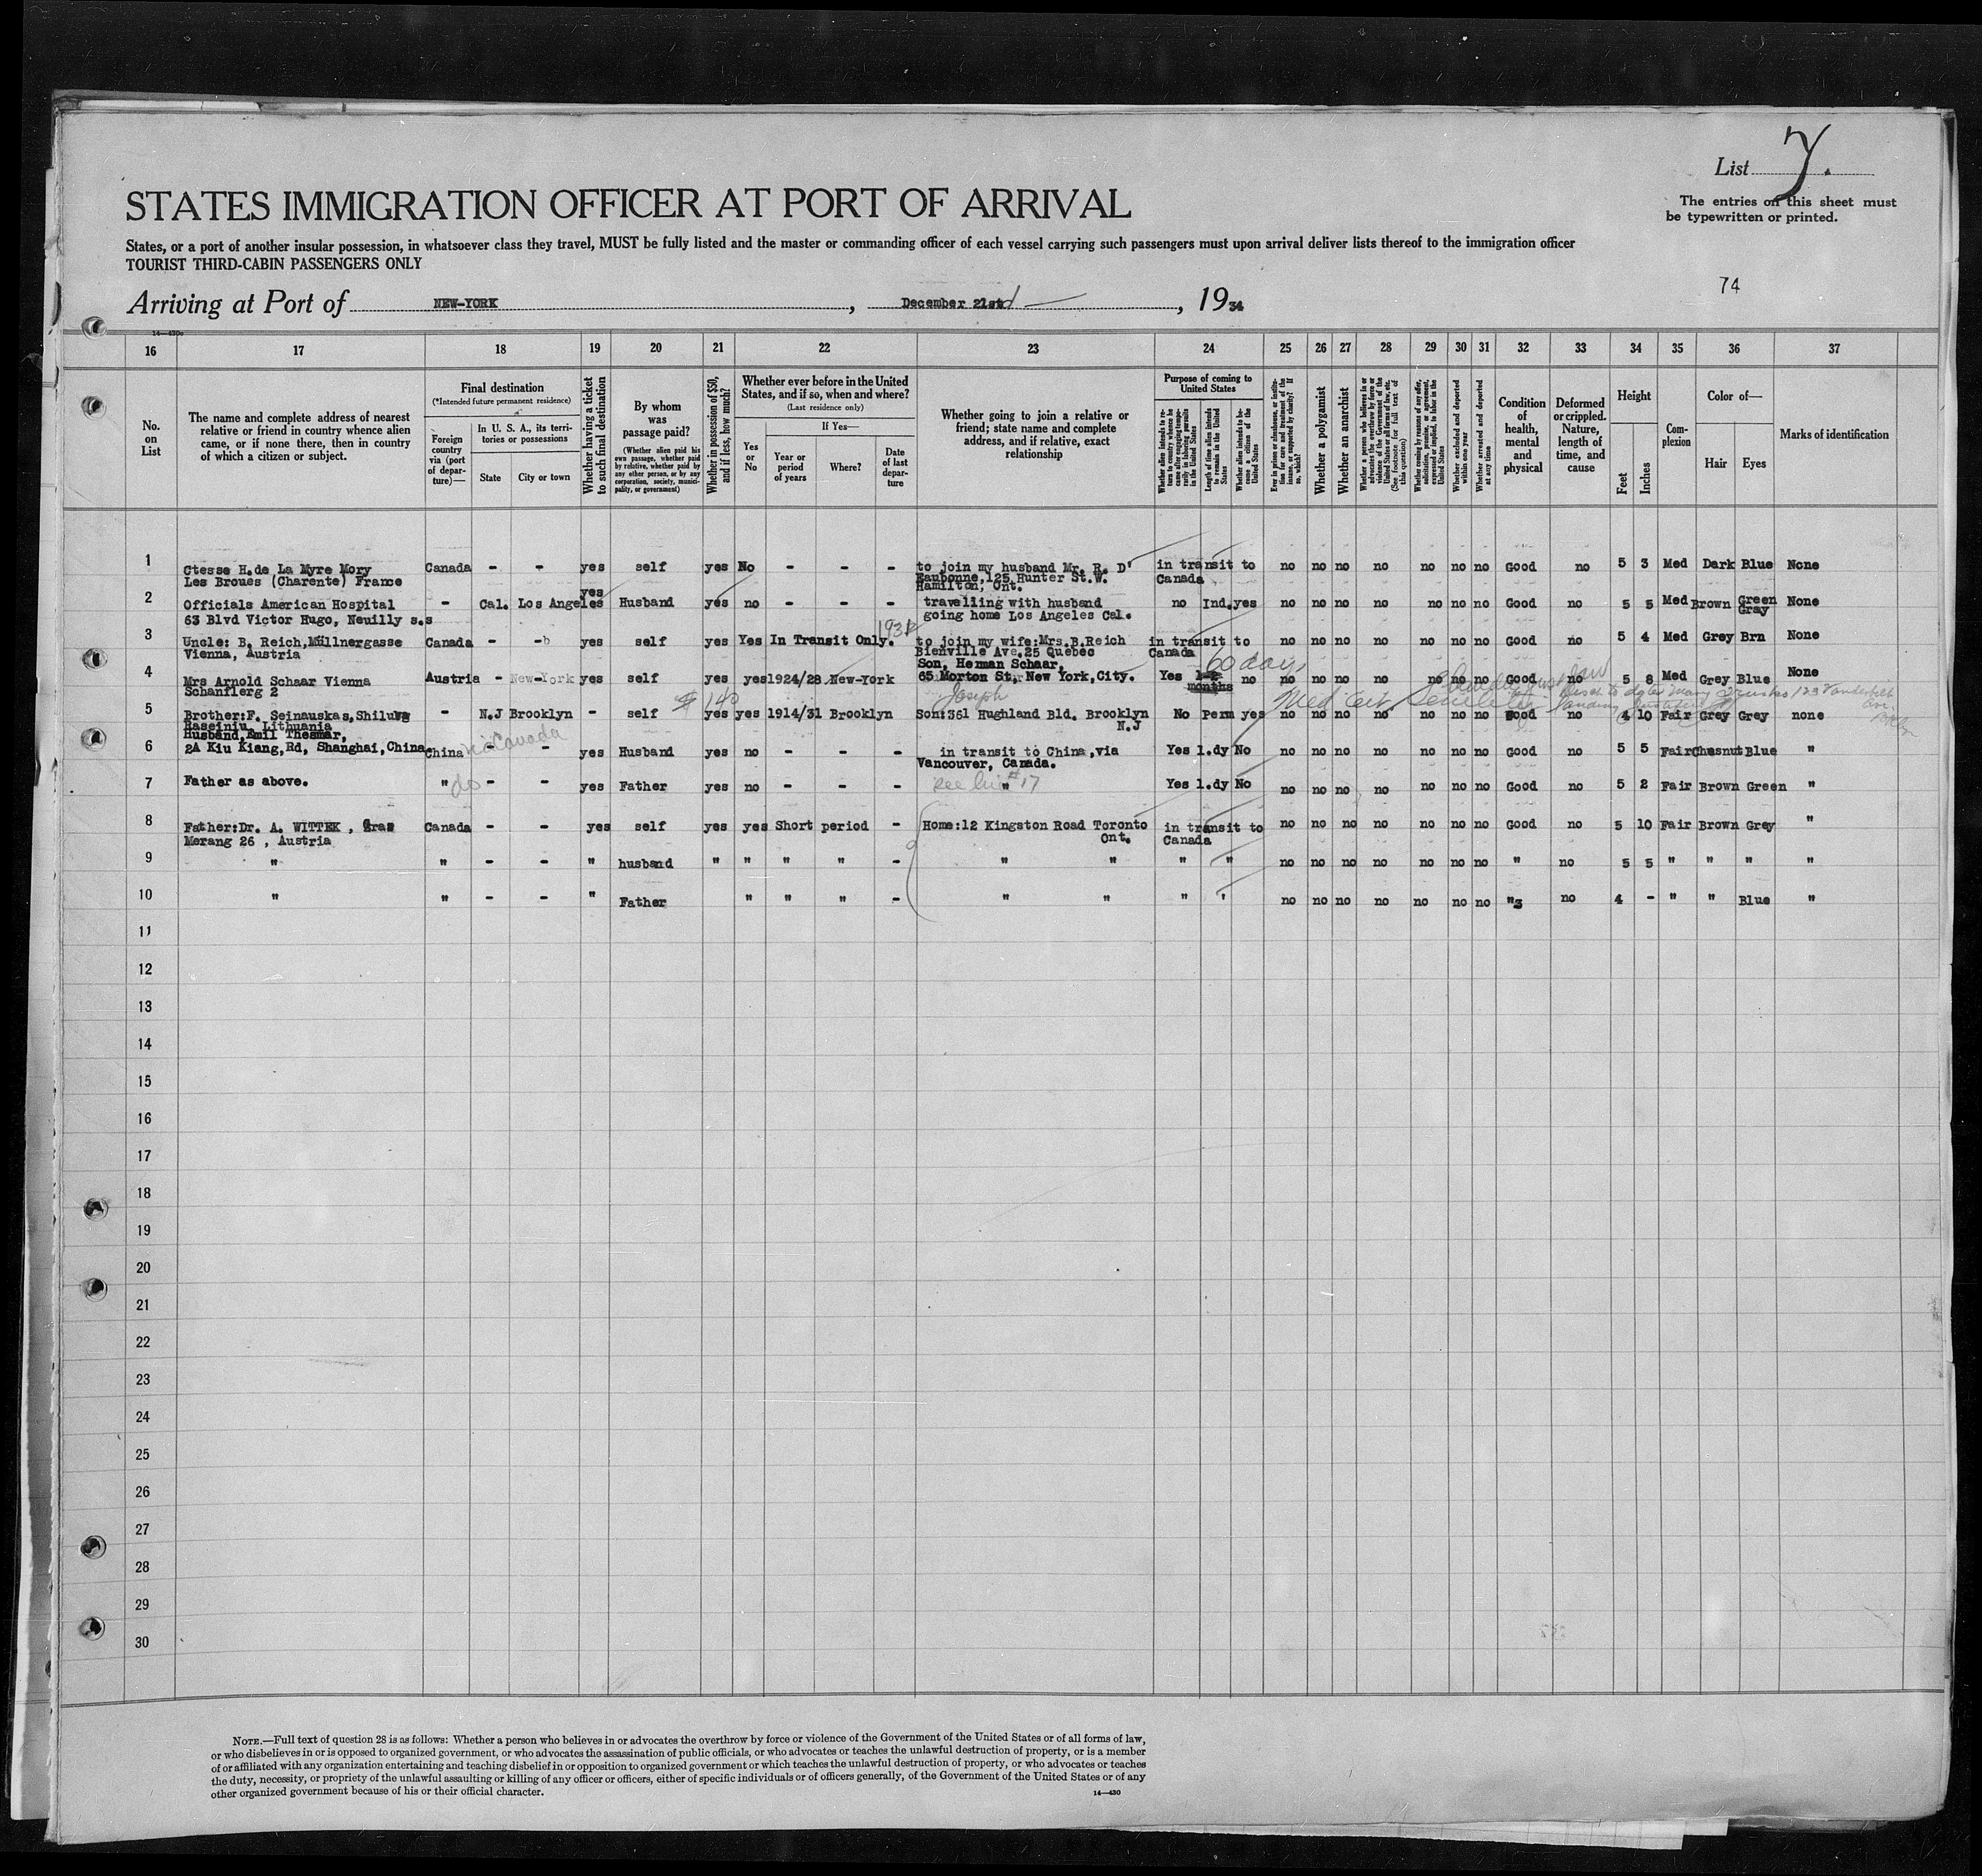 List 7.
The entries on this sheet must
be typewritten or printed.
STATES IMMIGRATION OFFICER AT PORT OF ARRIVAL
States, or a port of another insular possession, in whatsoever class they travel, MUST be fully listed and the master or commanding officer of each vessel carrying such passengers must upon arrival deliver lists thereof to the immigration officer
TOURIST THIRD-CABIN PASSENGERS ONLY
74
Arriving at Port of NEW-YORK, December 21st, 1934
14—430c
16 17 18 19 20 21 22 23 24 25 26 27 28 29 30 31 32 33 34 35 36 37
No. on List
The name and complete address of nearest relative or friend in country whence alien came, or if none there, then in country of which a citizen or subject.
Final destination
(*Intended future permanent residence)
Foreign country via (port of departure)—
In U. S. A., its territories or possessions
State
City or town
Whether having a ticket to such final destination
By whom was passage paid?
(Whether alien paid his own passage, whether paid by relative, whether paid by any other person, or by any corporation, society, municipality, or government)
Whether in possession of $50, and if less, how much?
Whether ever before in the United States, and if so, when and where?
(Last residence only)
Yes or No
If Yes—
Year or period of years
Where?
Date of last departure
Whether going to join a relative or friend; state name and complete address, and if relative, exact relationship
Purpose of coming to United States
Whether alien intends to return to country whence he came after engaging temporarily in laboring pursuits in the United States
Length of time alien intends to remain in the United States
Whether alien intends to become a citizen of the United States
Ever in prison or almshouse, or institution for care and treatment of the insane, or supported by charity? If so, which?
Whether a polygamist
Whether an anarchist
Whether a person who believes in or advocates the overthrow by force or violence of the Government of the United States or all forms of law, etc. (See footnote for full text of this question)
Whether coming by reason of any offer, solicitation, promise, or agreement, expressed or implied, to labor in the United States
Whether excluded and deported within one year
Whether arrested and deported at any time
Condition of health, mental and physical
Deformed or crippled. Nature, length of time, and cause
Height
Feet
Inches
Complexion
Color of—
Hair
Eyes
Marks of identification
1 Ctesse H.de La Myre Mory Canada - - yes self yes No - - - to join my husband Mr. R. D' in transit to no no no no no no no Good no 5 3 Med Dark Blue None
Les Broues (Charente) France Eaubonne,125 Hunter St.W. Canada
Hamilton, Ont.
2 Officials American Hospital - Cal. Los Angeles yes Husband yes no - - - travelling with husband no Ind. yes no no no no no no no Good no 5 5 Med Brown Green None
63 Blvd Victor Hugo, Neuilly s.s going home Los Angeles Cal. Gray
3 Uncle: B. Reich,Müllnergasse Canada - - yes self yes Yes In Transit Only. 1932 to join my wife:Mrs.B.Reich in transit to no no no no no no no Good no 5 4 Med Grey Brn None
Vienna, Austria Bienville Ave.25 Quebec Canada
Son, Herman Schaar, 60 days
4 Mrs Arnold Schaar Vienna Austria - New-York yes self yes yes 1924/28 New-York 65 Morton St, New York,City. Yes no no no no no no no no Good no 5 8 Med Grey Blue None
Schanflerg 2 months
$ 140 Joseph Med Cert Senility
5 Brother:F. Seinauskas,Shiluvg - N.J Brooklyn - self yes yes 1914/31 Brooklyn Son:361 Hughland Bld. Brooklyn No Perm yes no no no no no no no Good no 4 10 Fair Grey Grey none
Raseiniu, Lithuania N.J
Husband,Emil Thesmar,
6 2A Kiu Kiang,Rd, Shanghai,China. China via Canada - - yes Husband yes no - - - in transit to China,via Yes 1.dy No no no no no no no no Good no 5 5 Fair Chesnut Blue "
Vancouver, Canada.
7 Father as above. " do - - yes Father yes no - - - " see line #17 Yes 1.dy No no no no no no no no Good no 5 2 Fair Brown Green "
8 Father:Dr. A. WITTEK , Graz Canada - - yes self yes yes Short period - Home:12 Kingston Road Toronto in transit to no no no no no no no Good no 5 10 Fair Brown Grey "
Merang 26 , Austria Ont. Canada
9 " " - - " husband " " " " - " " " " no no no no no no no " no 5 5 " " " "
10 " " - - " Father " " " - " " " ' no no no no no no no "3 no 4 - " " Blue "
11
12
13
14
15
16
17
18
19
20
21
22
23
24
25
26
27
28
29
30
NOTE.—Full text of question 28 is as follows: Whether a person who believes in or advocates the overthrow by force or violence of the Government of the United States or of all forms of law,
or who disbelieves in or is opposed to organized government, or who advocates the assassination of public officials, or who advocates or teaches the unlawful destruction of property, or is a member
of or affiliated with any organization entertaining and teaching disbelief in or opposition to organized government or which teaches the unlawful destruction of property, or who advocates or teaches
the duty, necessity, or propriety of the unlawful assaulting or killing of any officer or officers, either of specific individuals or of officers generally, of the Government of the United States or of any
other organized government because of his or their official character.
14—430